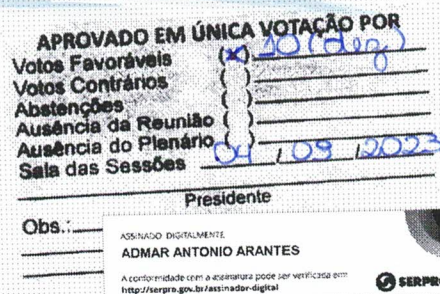 APROVADO EM ÚNICA VOTAÇÃO POR
Votos Favoráveis (x) 10 (dez)
Votos Contrários ( )
Abstenções ( )
Ausência da Reunião ( )
Ausência do Plenário ( )
Sala das Sessões 04 / 09 / 2023
Presidente
Obs.:
ASSINADO DIGITALMENTE
ADMAR ANTONIO ARANTES
A conformidade com a assinatura pode ser verificada em:
http://serpro.gov.br/assinador-digital
SERPRO